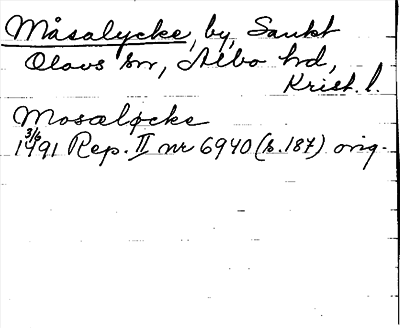 Måsalycke, by, Sankt
Olovs sn, Albo hd,
Krist. l.
Mosæløcke
3/6
1491 Rep. II nr 6940 (b. 187) orig.